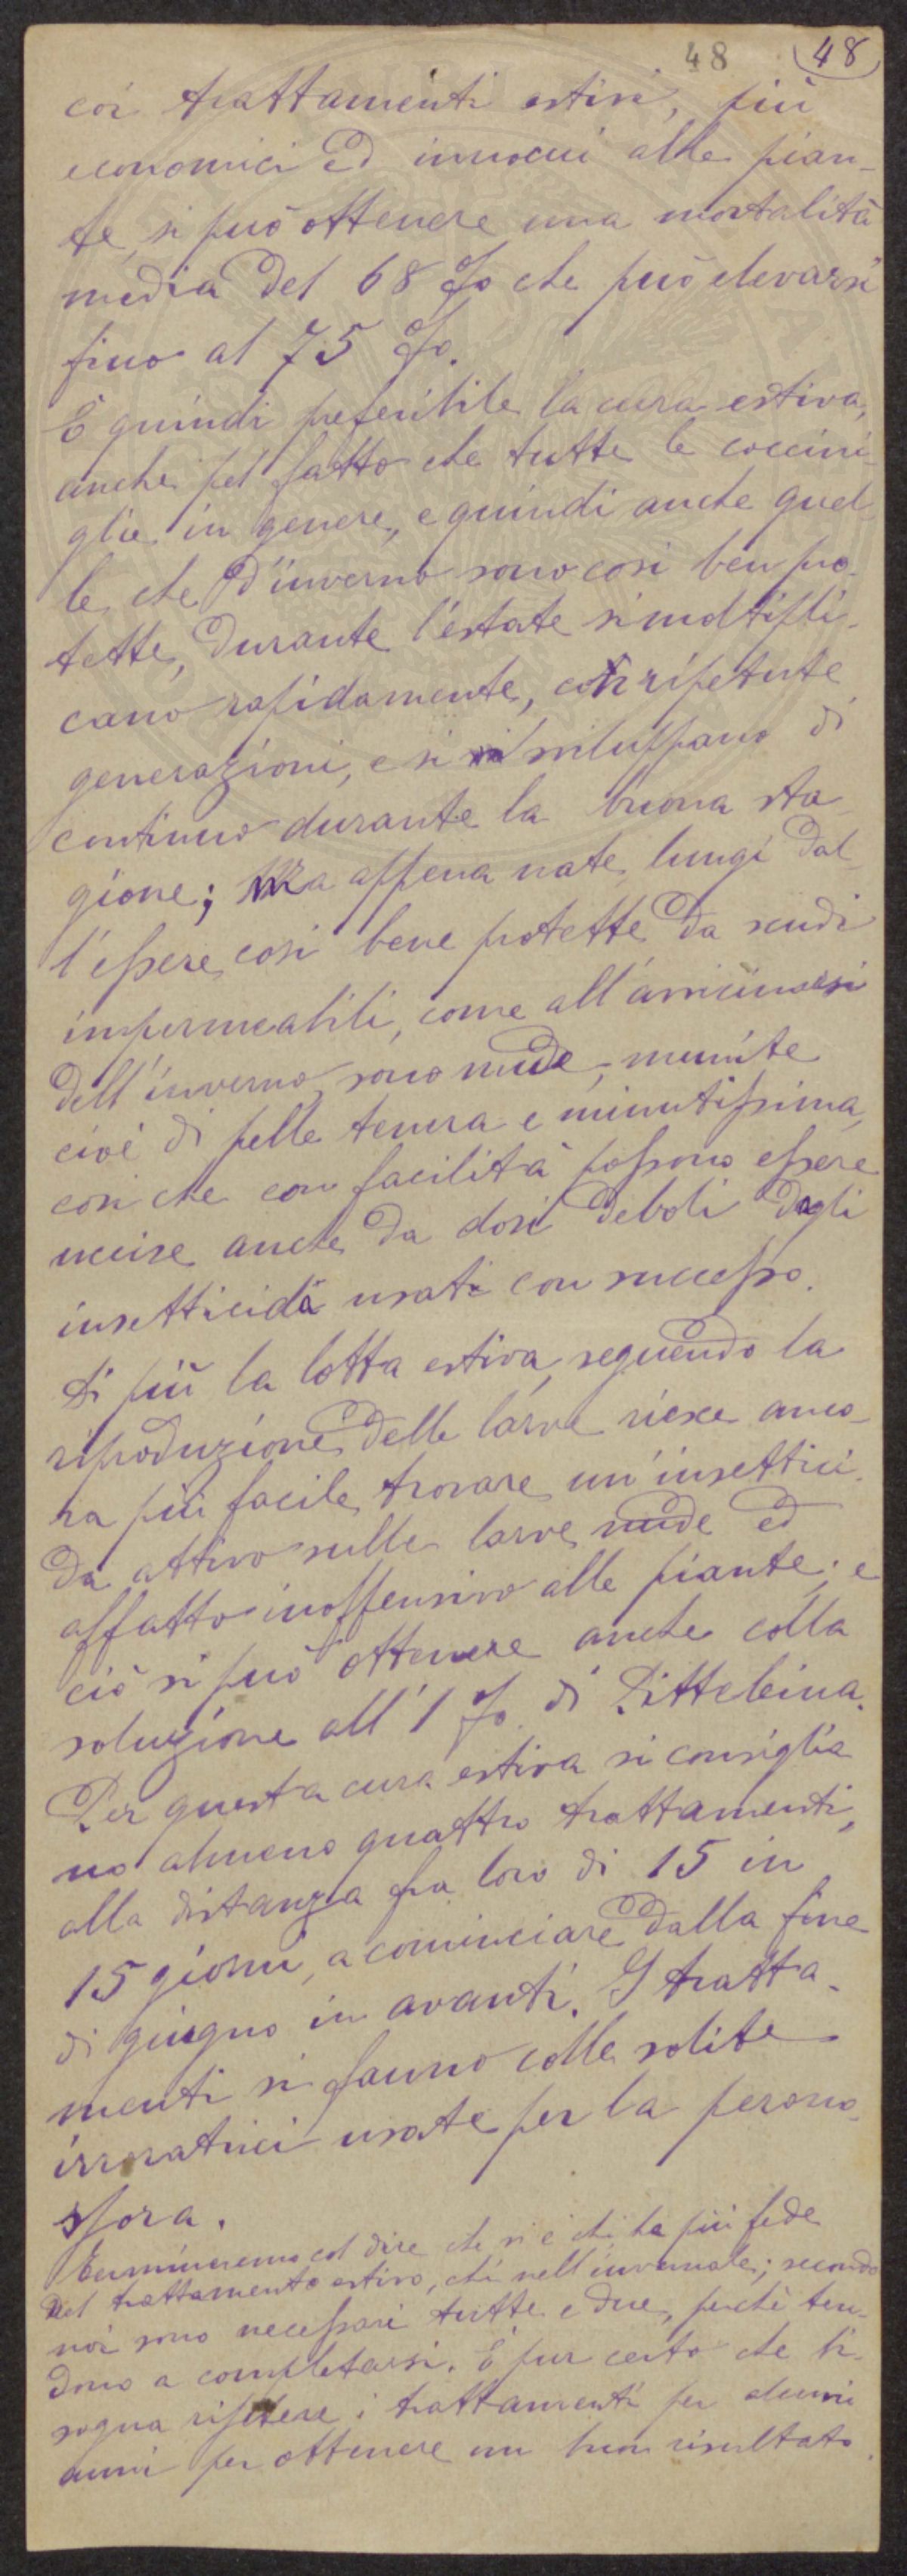 48 48
coi trattamenti estivi, più
economici ed innocui alle pian-
te, si può ottenere una mortalità
media del 68 % che può elevarsi
fino al 75 %.
È quindi preferibile la cura estiva,
anche pel fatto che tutte le coccini-
glie in genere, e quindi anche quel-
le che d'inverno sono così ben pro-
tette, durante l'estate si moltipli-
cano rapidamente, con ripetute
generazioni, e si sviluppano di
continuo durante la buona sta-
gione; ma appena nate, lungi dal-
l'essere così bene protette da scudi
impermeabili, come all'avvicinarsi
dell'inverno, sono nude, munite
cioè di pelle tenera e minutissima,
così che con facilità possono essere
uccise anche da dosi deboli degli
insetticidi usati con successo.
Di più la lotta estiva, seguendo la
riproduzione delle larve riesce anco-
ra più facile trovare un'insettici-
da attivo sulle larve nude ed
affatto inoffensivo alle piante; e
ciò si può ottenere anche colla
soluzione all'1 % di Pitteleina.
Per questa cura estiva si consiglia-
no almeno quattro trattamenti,
alla distanza fra loro di 15 in
15 giorni, a cominciare dalla fine
di giugno in avanti. I tratta-
menti si fanno colle solite
irroratrici usate per la perono-
spora.
Termineremo col dire che vi è chi ha più fede
nel trattamento estivo, chi nell'invernale; secondo
noi sono necessari tutte e due, perchè ten-
dono a completarsi. È pur certo che bi-
sogna ripetere i trattamenti per alcuni
anni per ottenere un buon risultato.